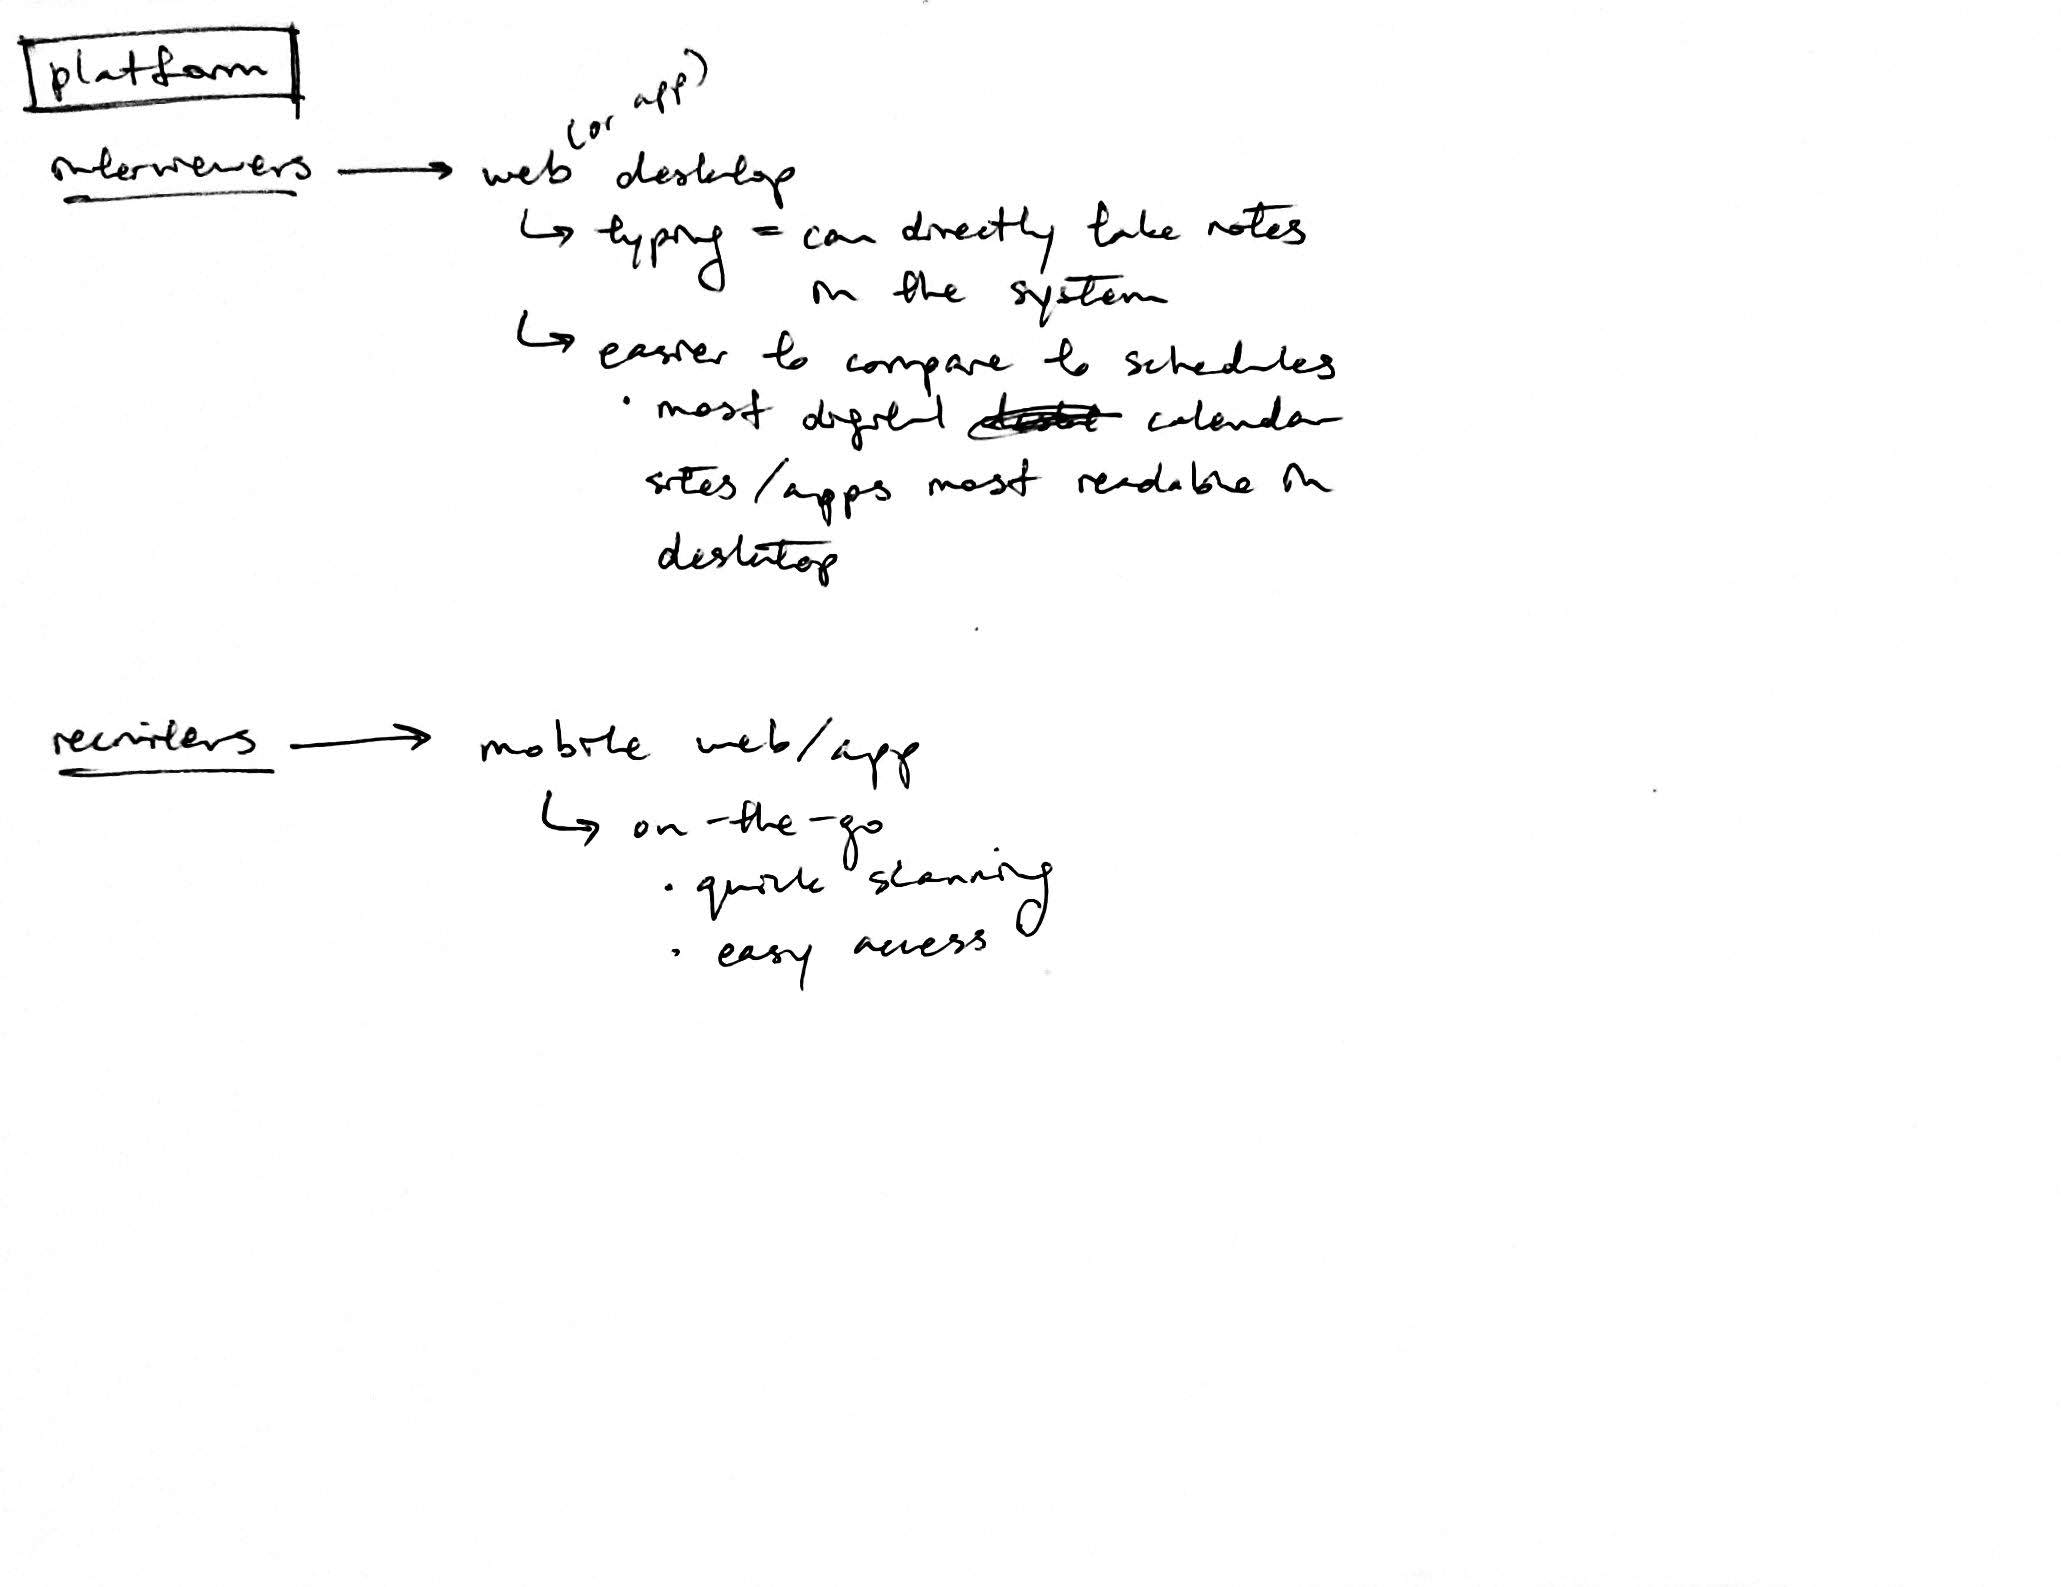 platform
interviewers → web (or app) desktop
↳ typing = can directly take notes
in the system
↳ easier to compare to schedules
• most digital calendar
sites/apps most readable in
desktop
recruiters → mobile web/app
↳ on-the-go
• quick scanning
• easy access